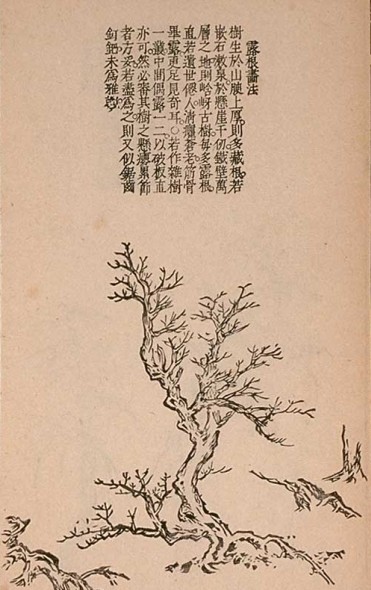 露根畫法
樹生於山腴土厚則多藏根若
嵌石漱泉於懸崖千仞鐵壁萬
層之地閒岭岈古樹每多露根
直若遺世僊人清癯蒼老筋骨
畢露更足見奇耳○若作雜樹
一叢中間偶露一二以破板直
亦可然必審其樹之懸癭累節
者方妥若盡爲之則又似鋸齒
釘鈀未爲雅